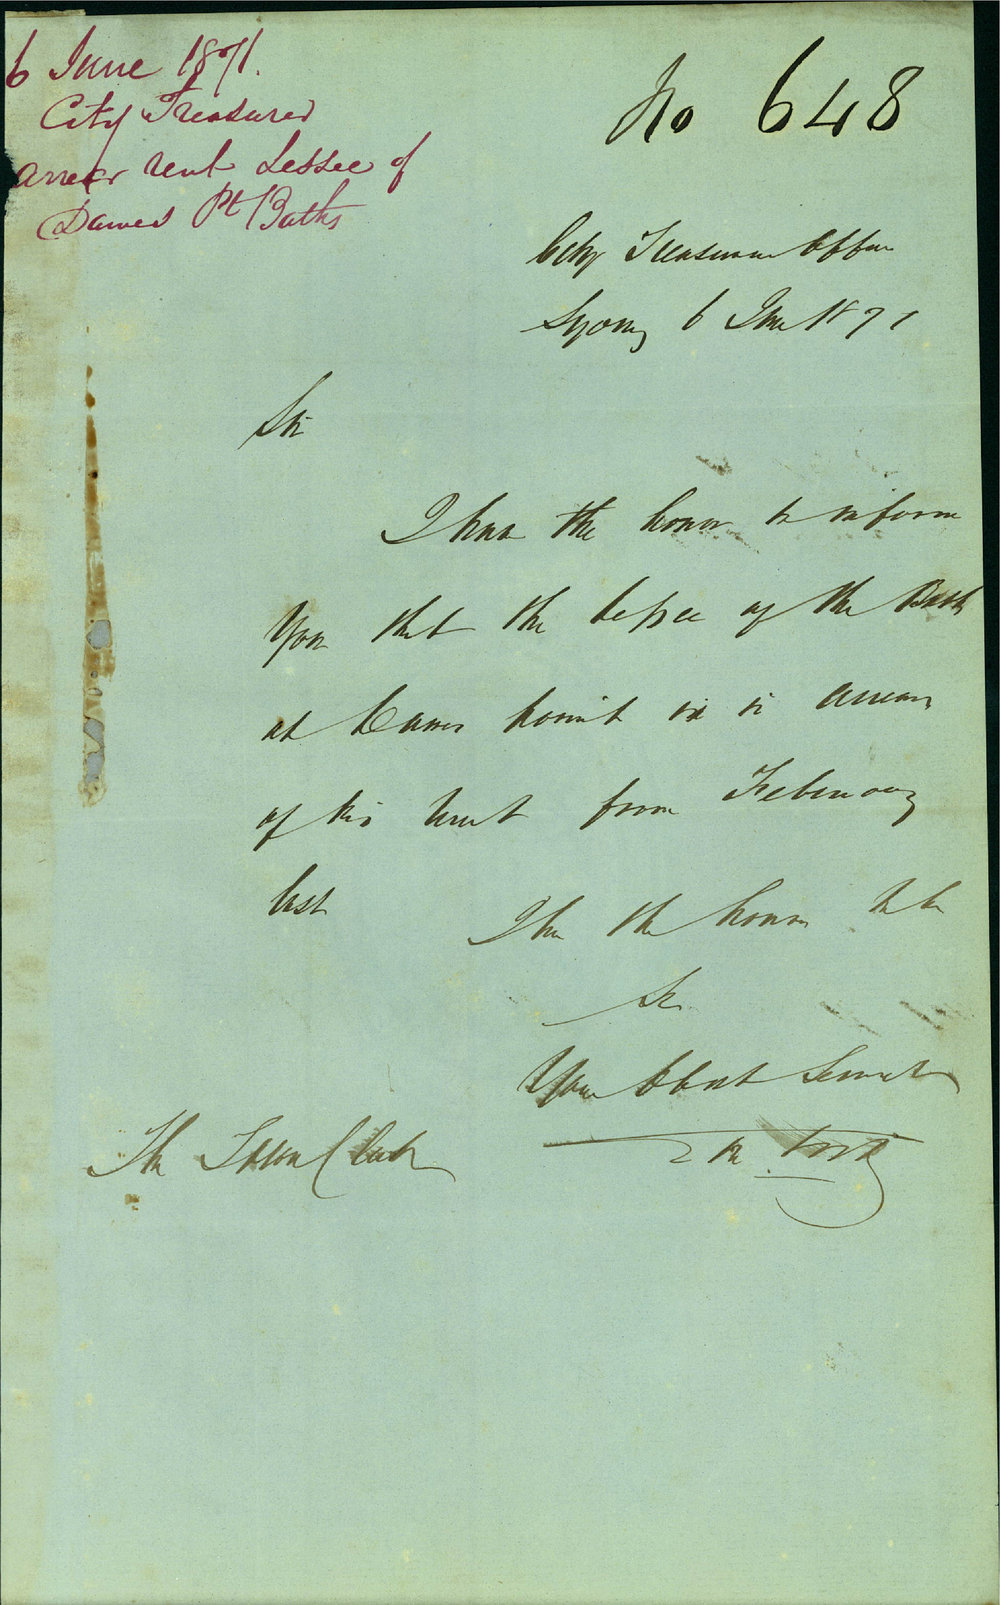 6 June 1871.
City Treasurer
Arrear rent Lessee of
Dawes Pt Baths
No 648
City Treasurer Office
Sydney 6 June 1871
Sir
I have the honor to inform
You that the lessee of the Bath
at Dawes Point is in arrears
of his rent from February
last
I have the honor to be
Sir
Your Obedt Servant
The Town Clerk